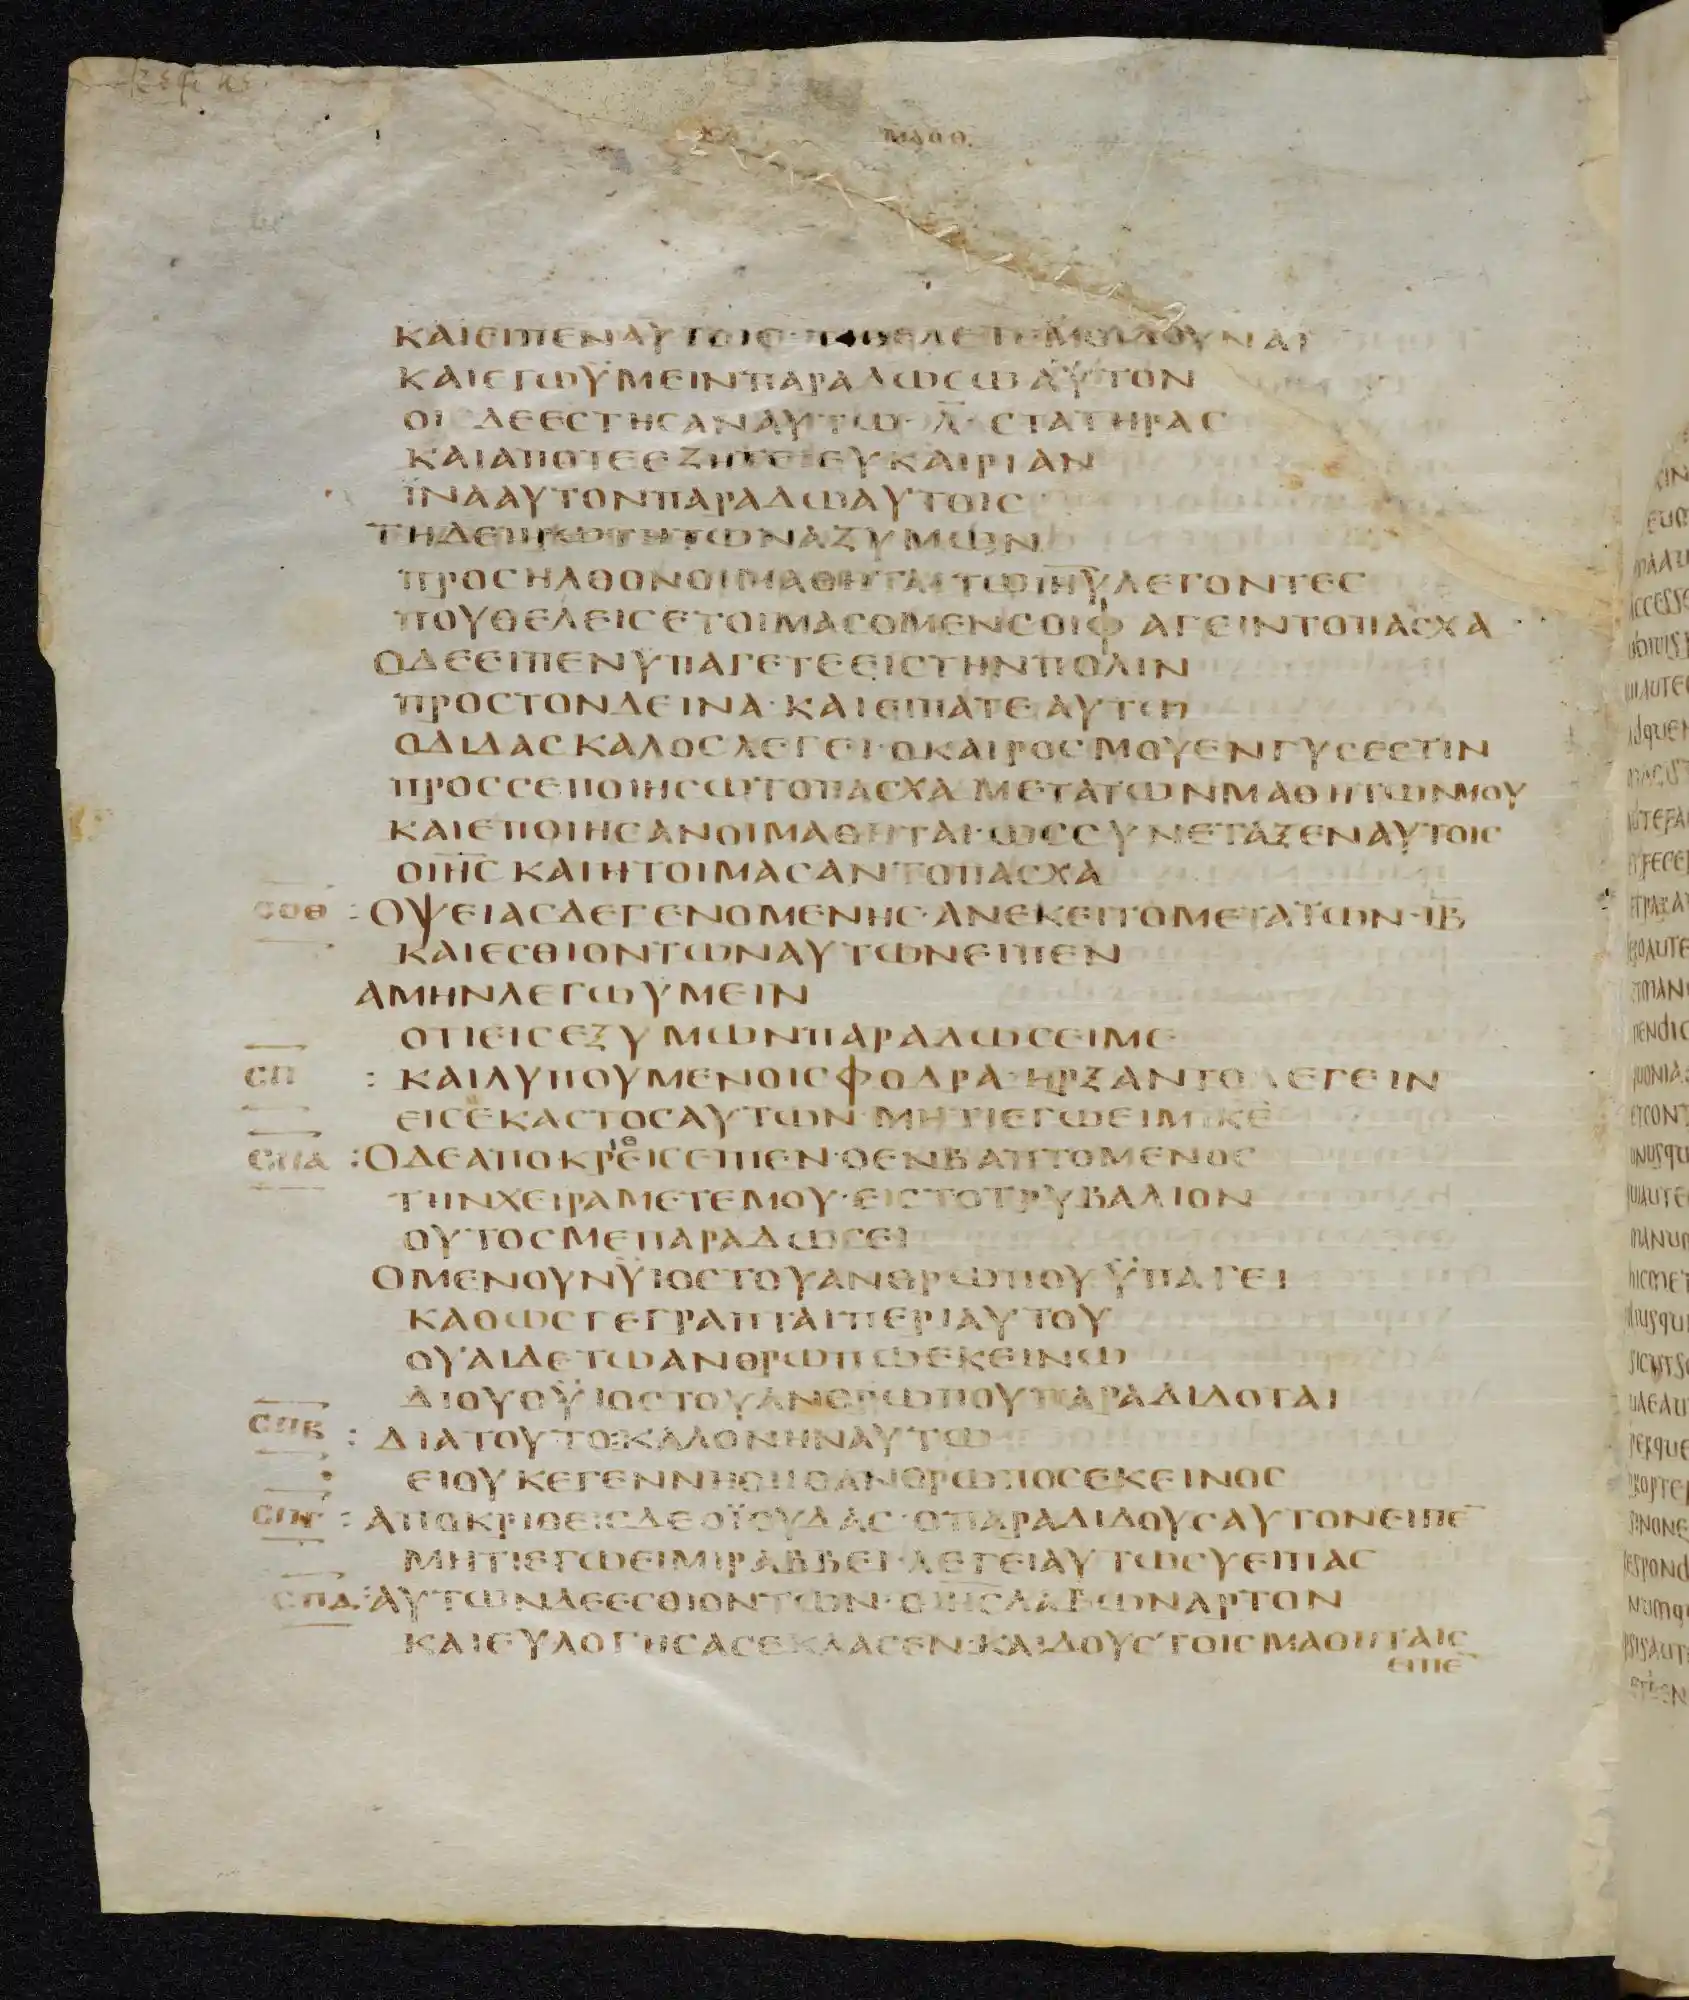 ΜΑΘΘ
ΚΑΙΕΙΠΕΝΑΥΤΟΙΣ·ΤΙΘΕΛΕΤΕΜΟΙΔΟΥΝΑΙ
ΚΑΙΕΓΩΫΜΕΙΝΠΑΡΑΔΩΣΩΑΥΤΟΝ
ΟΙ ΔΕΕΣΤΗΣΑΝΑΥΤΩ·Λ̅·ΣΤΑΤΗΡΑΣ
ΚΑΙΑΠΟΤΕΕΖΗΤΕΙΕΥΚΑΙΡΙΑΝ
ΪΝΑΑΥΤΟΝΠΑΡΑΔΩΑΥΤΟΙΣ
ΤΗΔΕΠΡΩΤΗΤΩΝΑΖΥΜΩΝ
ΠΡΟΣΗΛΘΟΝΟΙΜΑΘΗΤΑΙΤΩΙ̅Η̅Υ̅ΛΕΓΟΝΤΕΣ
ΠΟΥΘΕΛΕΙΣΕΤΟΙΜΑΣΟΜΕΝΣΟΙΦΑΓΕΙΝΤΟΠΑΣΧΑ
ΟΔΕΕΙΠΕΝΥΠΑΓΕΤΕΕΙΣΤΗΝΠΟΛΙΝ
ΠΡΟΣΤΟΝΔΕΙΝΑ·ΚΑΙΕΙΠΑΤΕΑΥΤΩ
ΟΔΙΔΑΣΚΑΛΟΣΛΕΓΕΙ·ΟΚΑΙΡΟΣΜΟΥΕΝΓΥΣΕΣΤΙΝ
ΠΡΟΣΣΕΠΟΙΗΣΩΤΟΠΑΣΧΑΜΕΤΑΤΩΝΜΑΘΗΤΩΝΜΟΥ
ΚΑΙΕΠΟΙΗΣΑΝΟΙΜΑΘΗΤΑΙ·ΩΣΣΥΝΕΤΑΞΕΝΑΥΤΟΙΣ
ΟΙ̅Η̅Σ̅ΚΑΙΗΤΟΙΜΑΣΑΝΤΟΠΑΣΧΑ
ΣΟΘ :ΟΨΕΙΑΣΔΕΓΕΝΟΜΕΝΗΣ·ΑΝΕΚΕΙΤΟΜΕΤΑΤΩΝ·Ι̅Β̅
ΚΑΙΕΣΘΙΟΝΤΩΝΑΥΤΩΝΕΙΠΕΝ
ΑΜΗΝΛΕΓΩΥΜΕΙΝ
ΟΤΙΕΙΣΕΞΥΜΩΝΠΑΡΑΔΩΣΕΙΜΕ
ΣΠ :ΚΑΙΛΥΠΟΥΜΕΝΟΙΣΦΟΔΡΑ·ΗΡΞΑΝΤΟΛΕΓΕΙΝ
ΕΙΣΕΚΑΣΤΟΣΑΥΤΩΝ·ΜΗΤΙΕΓΩΕΙΜΙΚ̅Ε̅
ΣΠΑ :ΟΔΕΑΠΟΚΡΙΘΕΙΣΕΙΠΕΝ·ΟΕΝΒΑΠΤΟΜΕΝΟΣ
ΤΗΝΧΕΙΡΑΜΕΤΕΜΟΥ·ΕΙΣΤΟΤΡΥΒΑΛΙΟΝ
ΟΥΤΟΣΜΕΠΑΡΑΔΩΣΕΙ
ΟΜΕΝΟΥΝΫΙΟΣΤΟΥΑΝΘΡΩΠΟΥΫΠΑΓΕΙ
ΚΑΘΩΣΓΕΓΡΑΠΤΑΙΠΕΡΙΑΥΤΟΥ
ΟΥΑΙΔΕΤΩΑΝΘΡΩΠΩΕΚΕΙΝΩ
ΔΙΟΥΟΫΙΟΣΤΟΥΑΝΘΡΩΠΟΥΠΑΡΑΔΙΔΟΤΑΙ
ΣΠΒ :ΔΙΑΤΟΥΤΟ:ΚΑΛΟΝΗΝΑΥΤΩ
ΕΙΟΥΚΕΓΕΝΝΗΘΗΟΑΝΘΡΩΠΟΣΕΚΕΙΝΟΣ
ΣΠΓ :ΑΠΟΚΡΙΘΕΙΣΔΕΟΪΟΥΔΑΣ·ΟΠΑΡΑΔΙΔΟΥΣΑΥΤΟΝΕΙΠΕ̅
ΜΗΤΙΕΓΩΕΙΜΙΡΑΒΒΕΙ·ΛΕΓΕΙΑΥΤΩΣΥΕΙΠΑΣ
ΣΠΔ:ΑΥΤΩΝΔΕΕΣΘΙΟΝΤΩΝ·ΟΙ̅Η̅Σ̅ΛΑΒΩΝΑΡΤΟΝ
ΚΑΙΕΥΛΟΓΗΣΑΣΕΚΛΑΣΕΝ:ΚΑΙΔΟΥΣΤΟΙΣΜΑΘΗΤΑΙΣ
ΕΙΠΕ̅